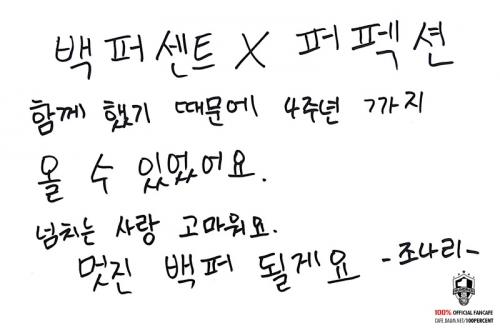 백퍼센트 X 퍼펙션
함께 했기 때문에 4주년 까지
올 수 있었어요.
넘치는 사랑 고마워요.
멋진 백퍼 될게요 -조나리-
100% OFFICIAL FANCAFE
CAFE.DAUM.NET/100PERCENT